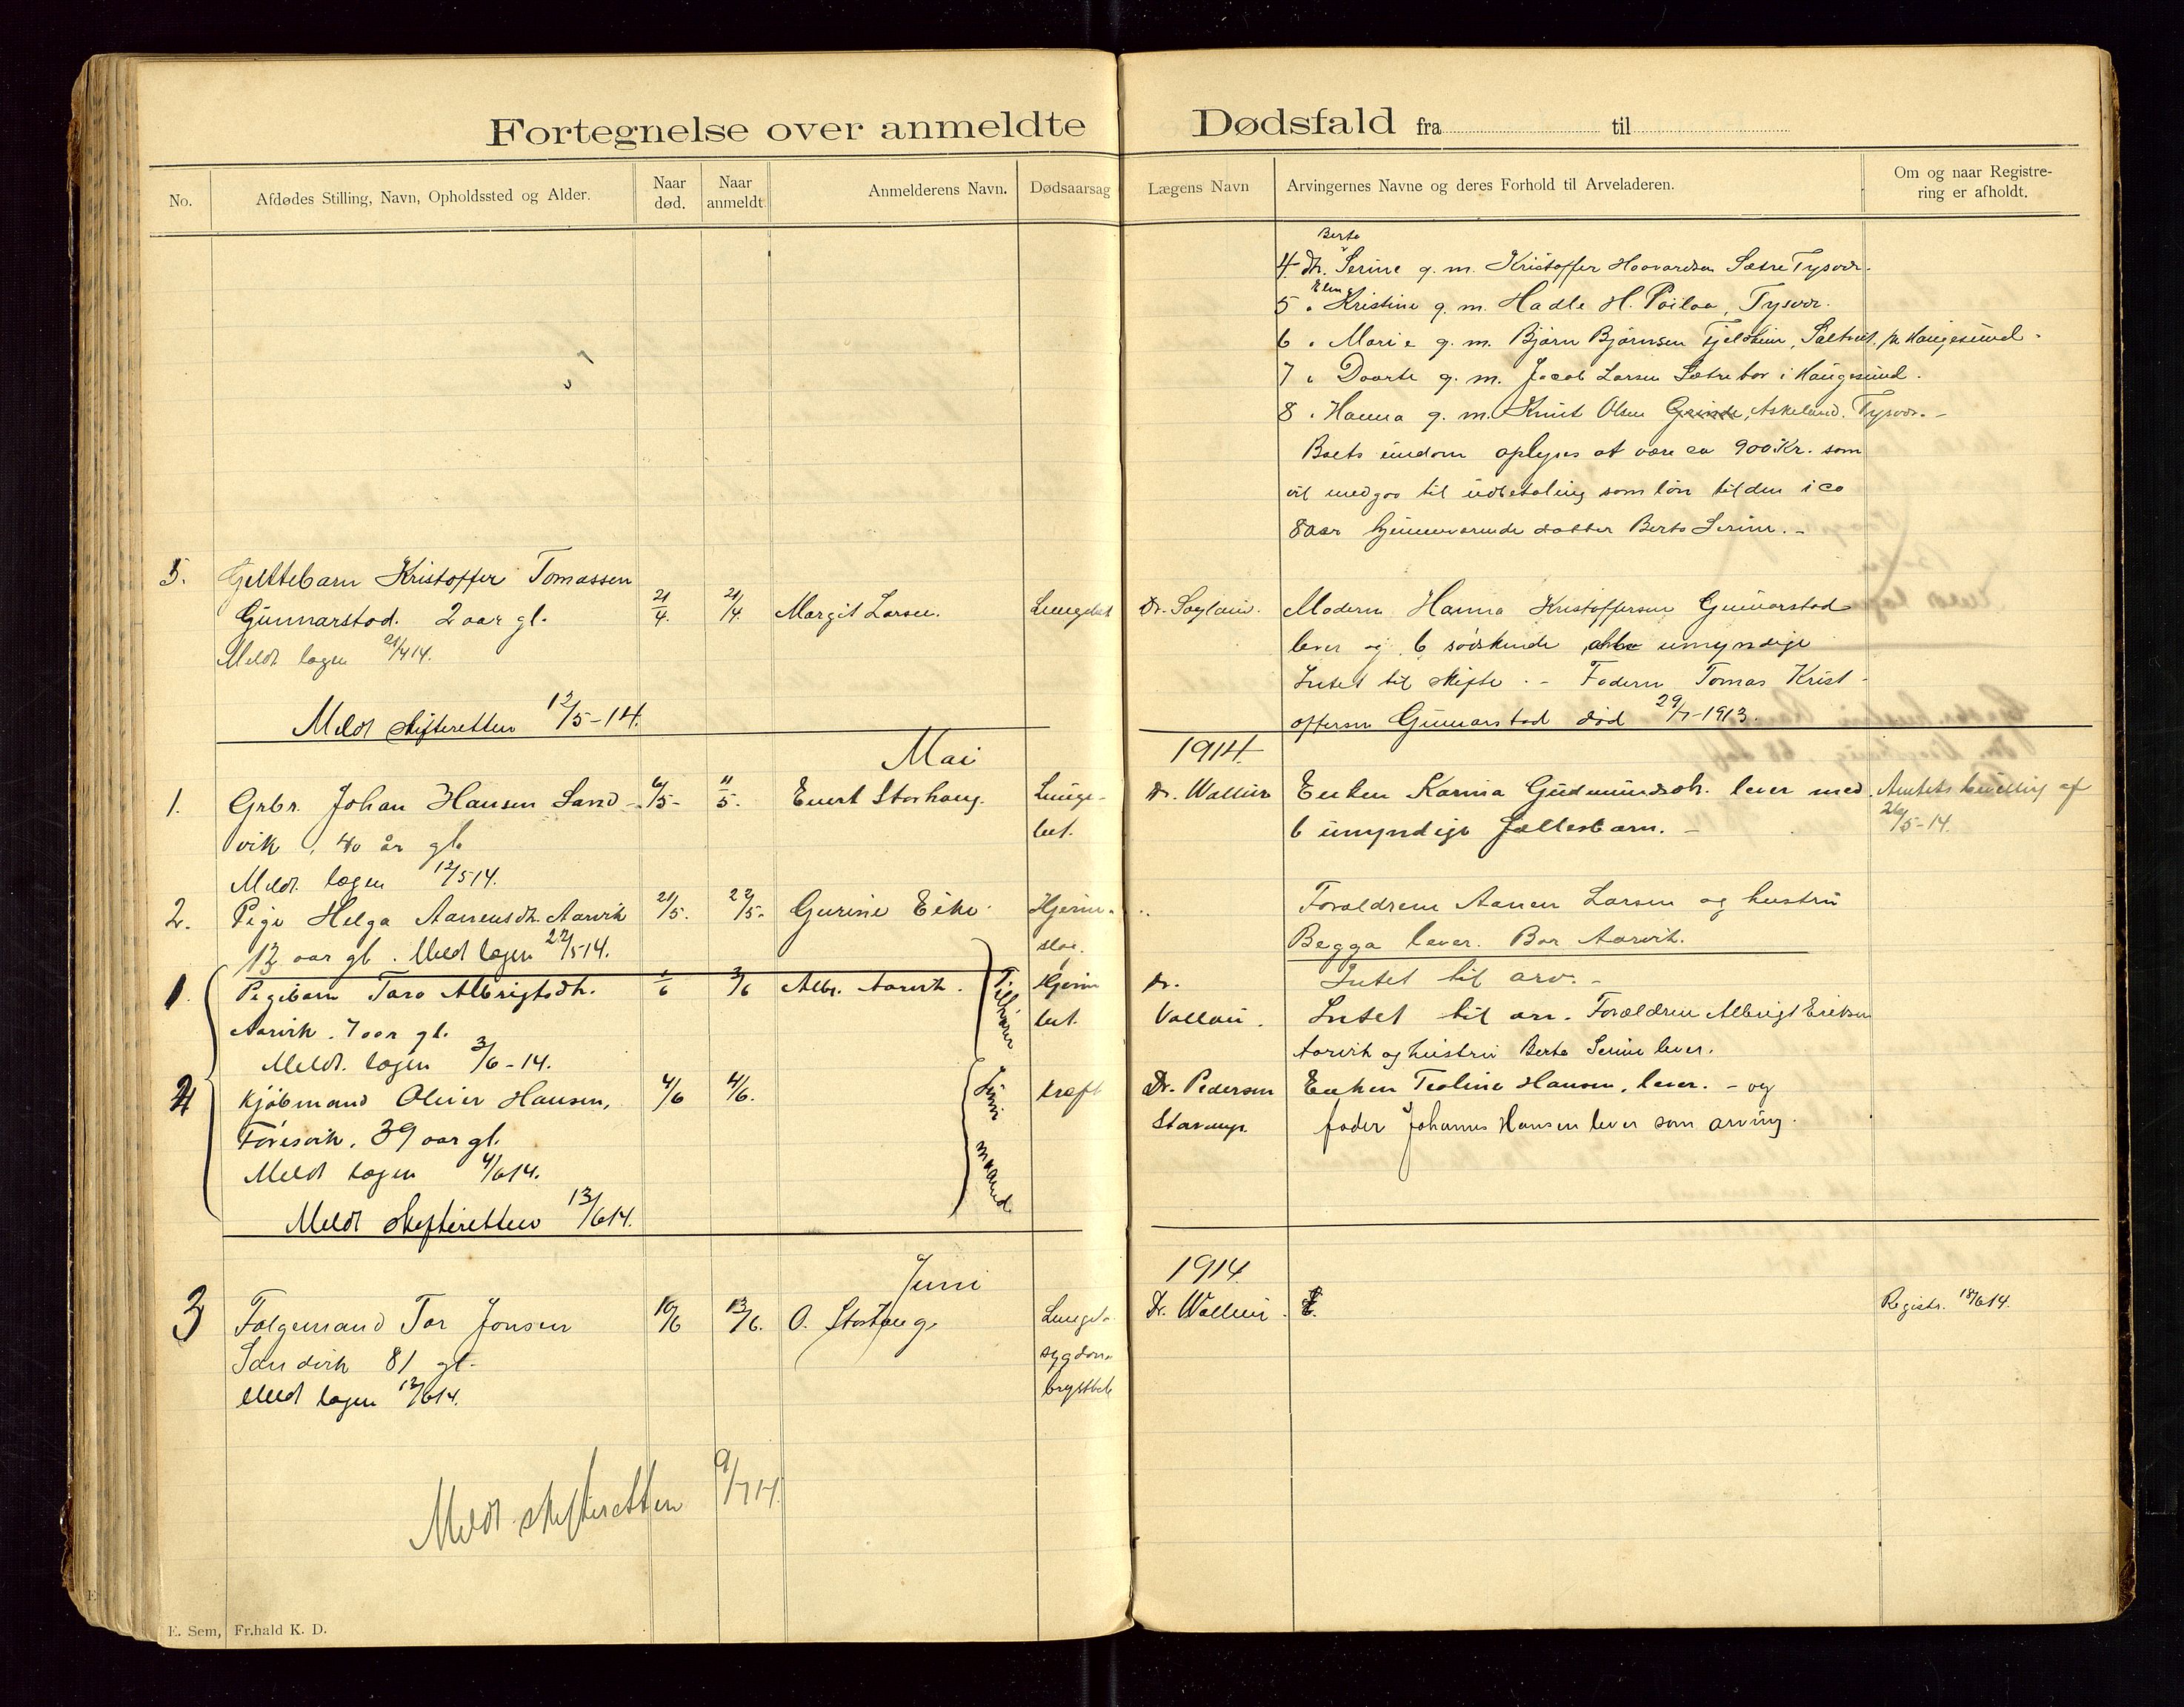 Fortegnelse over anmeldte Dødsfald fra til
No.
Afdødes Stilling, Navn, Opholdssted og Alder.
Naar død.
Naar anmeldt.
Anmelderens Navn.
Dødsaarsag
Lægens Navn
Arvingernes Navne og deres Forhold til Arveladeren.
Om og naar Registre-
ring er afholdt.
Berta
4. dt. Serine g. m. Kristoffer Haavardsen Sætre Tysvær.
5 „ Kristine g. m. Hadle H. Tysvær.
6 „ Marie g. m. Bjørn Bjørnsen Fjeldheim, pr Haugesund.
7 „ Daarte g. m. Jacob Larsen Sætre bor i Haugesund.
8 „ Hanna g. m. Knut Olsen Grinde, Askeland. Tysvær. -
Boets eiendom oplyses at være ca 900 Kr. som
vil medgaa til udbetaling som løn til den i ca
8 aar hjemmeværende datter Berta Serine. -
5. Guttebarn Kristoffer Tomassen
Gunnarstad. 2 aar gl. 21/4. 21/4. Margit Larsen. Dr. Moderen Hanna Kristoffersen Gunnarstad
Meldt lægen 21/4 14. lever og 6 søskende umyndige
Intet til skifte. - Faderen Tomas Krist-
Meldt skifteretten 12/5-14. offersen Gunnarstad død 29/7-1913.
Mai 1914.
1. Grbr. Johan Hansen Sand- 6/5- 11/5. Enert Storhaug. Lunge- Dr. Wallin Enken Karina Gudmundsdt. lever med Amtets bevilling af
vik, 40 år gl. bet. 6 umyndige fællesbarn. - 26/5-14.
Meldt. lægen 12/5 14.
2. Pige Helga Aanensdt. Aarvik 21/5. 22/5. Gurine Eike. Hjerne- „ Forældrene Aanen Larsen og hustru
12 aar gl. Meldt lægen 22/5 14. Begga lever. Bor Aarvik.
Intet til arv. -
1. Pigebarn Tara Albrigtsdt. 1/6 3/6 Albr. Aarvik. Tilhører Hjerne Dr.
Aarvik. 7 aar gl. bet. Intet til arv. Forældrene Albrigt Eriksen
Meldt. lægen 3/6-14. Aarvik og hustru Berta Serine lever.
2 Kjøbmand Oliver Hansen, 4/6 4/6. Juni Kræft Dr. Pedersen Enken Teoline Hansen, lever. - og
Føresvik. 39 aar gl. maaned Stavanger fader Johannes Hansen lever som arving.
Meldt lægen 4/6 14.
Meldt skifteretten 13/6 14.
Juni 1914
3 Følgemand Tor Jonsen 10/6 13/6. O. Storhaug Dr. Wallin. Registr. 18/6 14.
Sandvik 81 gl. sygdom
Meldt lægen 13/6 14.
Meldt skifteretten 9/7 14.
E. Sem, Fr.hald K. D.